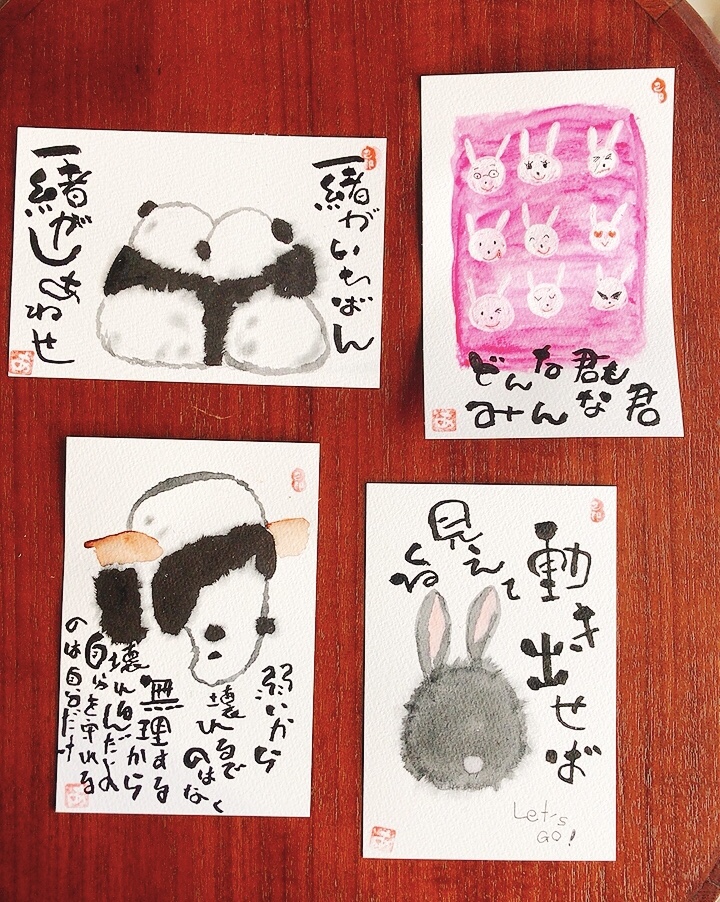 一緒がいちばん
一緒がしあわせ
どんな君も
みんな君
弱いから
壊れるで
のはなく
無理するから
壊れるんだよ
自らを守れる
のは自分だけ
動き出せば
見えて
くる
Let's
GO!